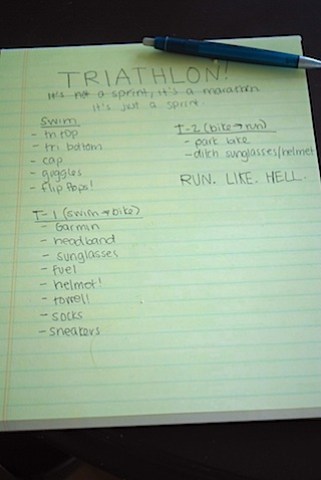 TRIATHLON!
It's not a sprint, it's a marathon
it's just a sprint.
Swim
- tri top
- tri bottom
- cap
- goggles
- flip flops!
T-1 (swim → bike)
- Garmin
- headband
- sunglasses
- fuel
- helmet!
- towel!
- socks
- sneakers
T-2 (bike → run)
- park bike
- ditch sunglasses/helmet
RUN. LIKE. HELL.